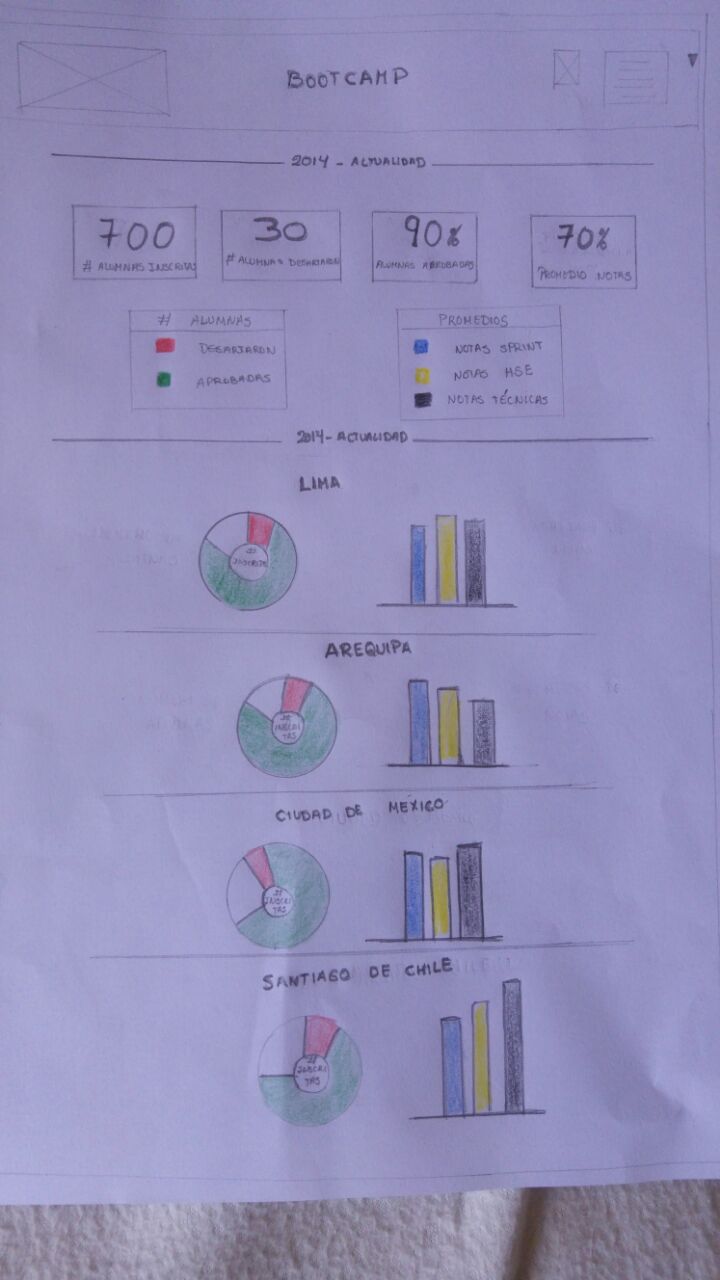 BOOTCAMP
2014 - ACTUALIDAD
700
# ALUMNAS INSCRITAS
30
# ALUMNAS DESARTARON
90%
ALUMNAS APROBADAS
70%
PROMEDIO NOTAS
# ALUMNAS
DESARTARON
APROBADAS
PROMEDIOS
NOTAS SPRINT
NOTAS HSE
NOTAS TÉCNICAS
2014 - ACTUALIDAD
LIMA
#
INSCRITS
AREQUIPA
#
INSCRI
TAS
CIUDAD DE MÉXICO
#
INSCRI
TAS
SANTIAGO DE CHILE
#
INSCRI
TAS